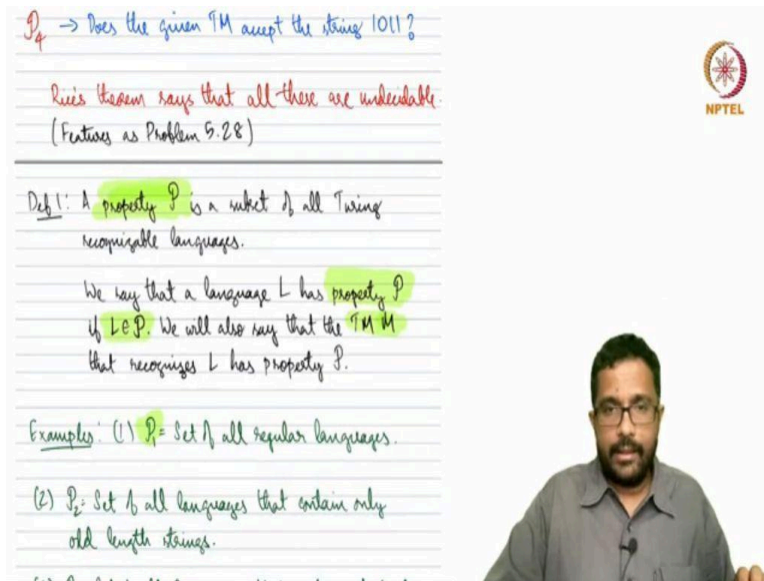 P4 → Does the given TM accept the string 1011?
Rice's theorem says that all these are undecidable.
(Features as Problem 5.28)
NPTEL
Def 1: A property P is a subset of all Turing
recognizable languages.
We say that a language L has property P
if L∈P. We will also say that the TM M
that recognizes L has property P.
Examples: (1) P1 = Set of all regular languages.
(2) P2 = Set of all languages that contain only
odd length strings.